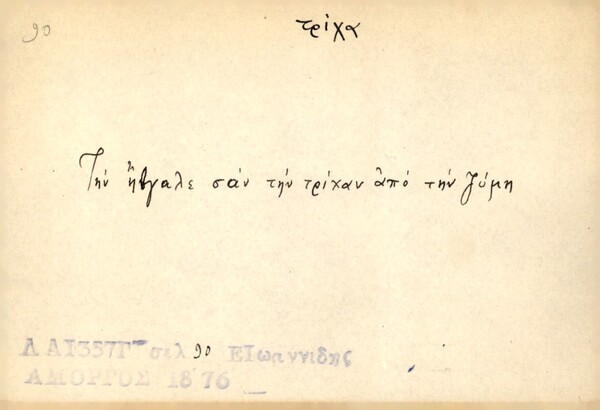 90
τρίχα
Τήν ἤβγαλε σάν τήν τρίχαν ἀπό τήν ζύμη
Λ Α 1357 Γ σελ 90 Ε Ιωαννιδης
ΑΜΟΡΓΟΣ 1876